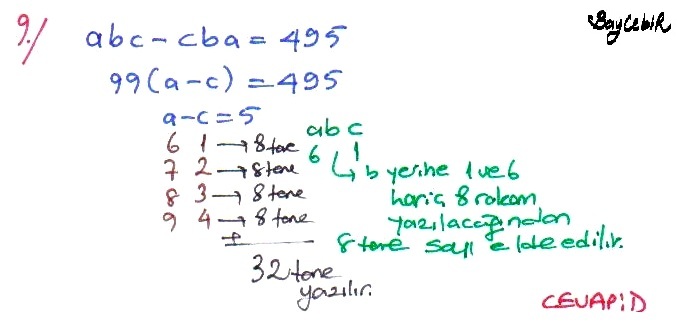 9./ abc - cba = 495
BayCebiR
99(a-c) = 495
a-c = 5
6 1 → 8 tane
7 2 → 8 tane
8 3 → 8 tane
9 4 → 8 tane
+
32 tane
yazılır.
abc
6 1
↳ b yerine 1 ve 6
hariç 8 rakam
yazılacağından
8 tane sayı elde edilir.
CEVAP: D